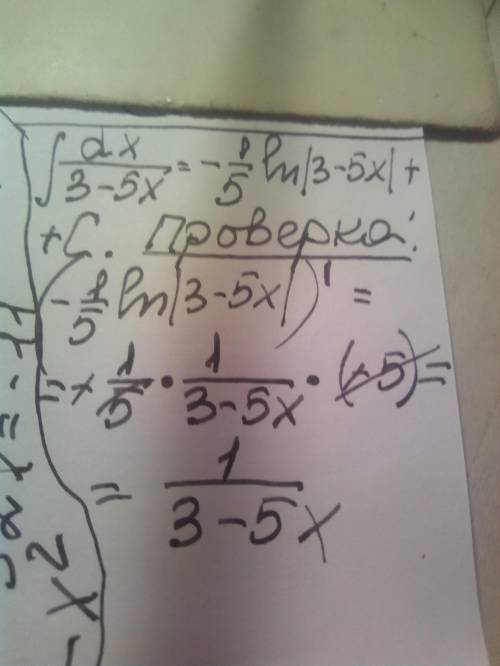 ∫ dx/(3-5x) = -1/5 ln|3-5x| +
+C. Проверка:
(-1/5 ln|3-5x|)' =
= -1/5 · 1/(3-5x) · (-5) =
= 1/(3-5x)